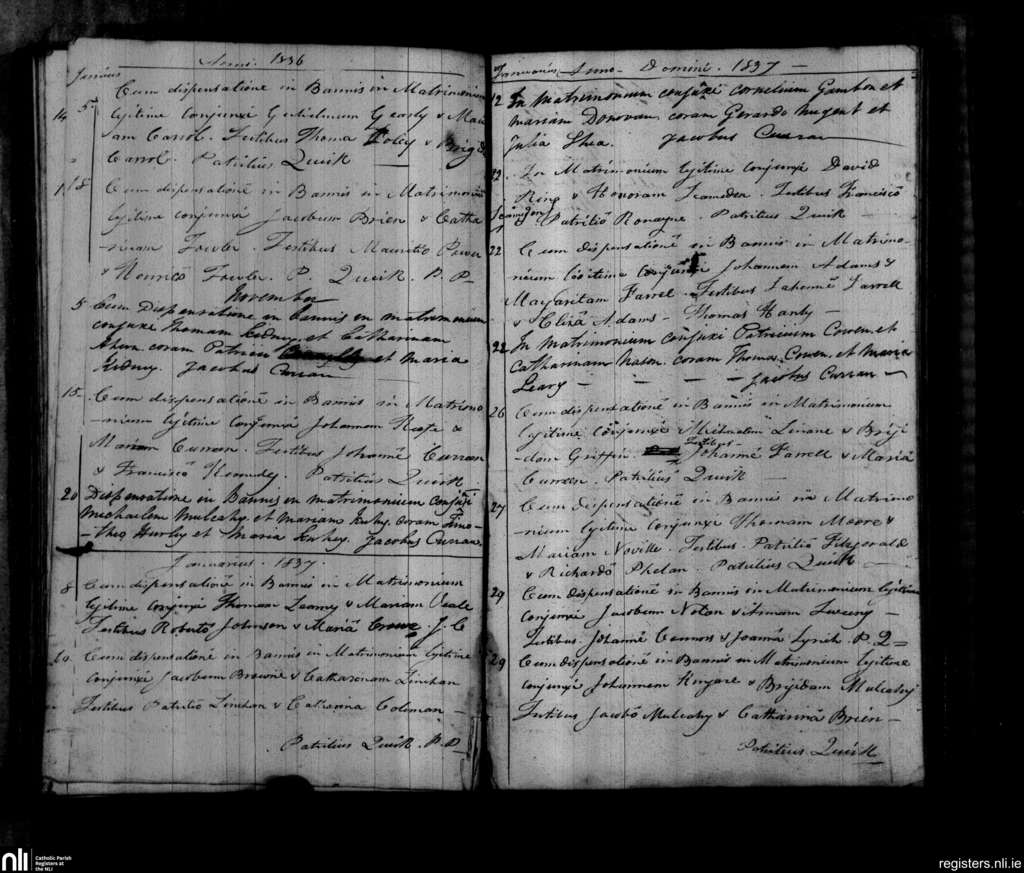 Anni. 1836
Junius
Cum dispensatione in Bannis in Matrimonium
14 5 legitime Conjunxi Gulielmum Gearly & Mari
am Carrol. Testibus Thoma Foley & Brigida
Carrol. Patritius Quirk
18 Cum dispensationē in Bannis in Matrimonium
legitime conjunxi Jacobum Brien & Catha
rinam Fowler. Testibus Mauritio Power
& Fowler. P. Quirk. P. P.
November
5 Cum Dispensatione in bannis in matrimonium
conjunxi Thomam Kidney et Catharinam
Ahern coram Patricio et Maria
Kidney. Jacobus Curran
15 Cum dispensationē in Bannis in Matrimo
nium legitime Conjunxi Johannem Keefe &
Mariam Curran. Testibus Johannē Curran
& Franciscō Kennedy. Patritius Quirk
20 Dispensatione in Bannis in matrimonium conjunxi
Michaelem Mulcahy et mariam coram Timo
theo Hurley et Maria Jacobus Curran
Januarius. 1837.
8 Cum dispensationē in Bannis in Matrimonium
legitime Conjunxi Thomam Leamy & Mariam Veale
Testibus Robertō Johnson & Mariā J. C
10 Cum dispensationē in Bannis in Matrimonium legitime
Conjunxi Jacobum Browne & Catharinam Linehan
Testibus Patritio Linehan & Catharina Coleman
Patritius Quirk. P. P.
Januarius Anno Domini. 1837
12 In matrimonium conjunxi Cornelium Gambon et
mariam Donovan coram Gerardo Nugent et
Julia Shea. Jacobus Curran
22. In Matrimonium legitime Conjunxi David
Ring & Honoram Testibus Franciscō
& Patritiō Ronayne. Patritius Quirk
22 Cum dispensationē in Bannis in Matrimo
nium legitime conjunxi Johannem Adams &
Margaritam Farrel. Testibus Johannē Farrell
& Elizā Adams Thomas Hanly
22 In matrimonium conjunxi Patricium et
Catharinam Nason. coram Thoma et Maria
Leary Jacobus Curran
26 Cum dispensationē in Bannis in Matrimonium
legitime conjunxi Michaelem & Brigi
dam Griffin. Testibus Johannē Farrell & Mariā
Curreen. Patritius Quirk
27 Cum dispensationē in Bannis in Matrimo
nium legitime Conjunxi Thomam Moore &
Mariam Neville. Testibus Patritiō Fitzgerald
& Richardō Phelan. Patritius Quirk
29 Cum dispensationē in Bannis in Matrimonium legitime
Conjunxi Jacobum & Annam
Testibus. Johannē Connors & Joannā Lynch P. Q
29 Cum dispensationē in Bannis in Matrimonium legitime
Conjunxi Johannem & Brigidam Mulcahy
Testibus Jacobō Mulcahy & Catharinā Brien
Patritius Quirk
nli
Catholic Parish
Registers at
the NLI
registers.nli.ie